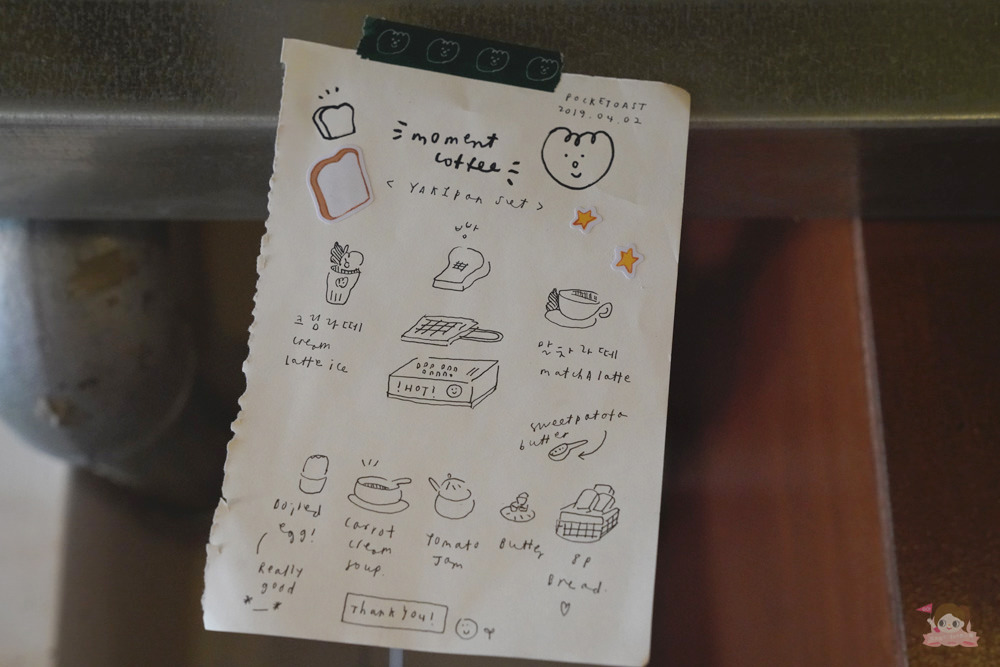 POCKETOAST
2019.04.02
moment
coffee
< YAKIpan set >
빠방
크림라떼
cream
latte ice
말차라떼
matchA latte
!HOT!
sweetpotato
butter
Boiled
egg!
Really
good
*_*
Carrot
cream
soup.
Tomato
Jam
Butter
8p
Bread.
♡
Thank YOU!